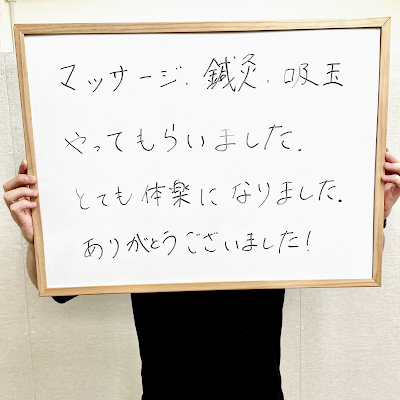 マッサージ.鍼灸.吸玉
やってもらいました.
とても体楽になりました.
ありがとうございました!